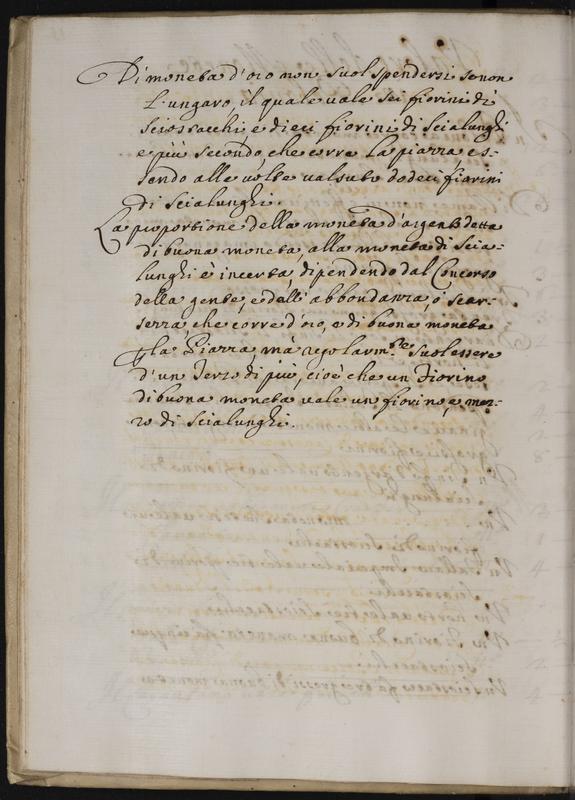 Di moneta d'oro non suol spendersi se non
l'ungaro, il quale vale sei fiorini di
sciossacchi, e dieci fiorini di scialunghi
e più secondo, che corre la piazza, es-
sendo alle volte valsuto dodeci fiorini
di scialunghi.
La proportione della moneta d'argento detta
di buona moneta, alla moneta di scia-
lunghi è incerta, dipendendo dal Concorso
della gente, e dell'abbondanza, ò scar-
sezza, che corre d'oro, e di buona moneta
la Piazza mà regolarm.te suol essere
d'un Terzo di più, cioè che un Fiorino
di buona moneta vale un fiorino, e mez-
zo di scialunghi.